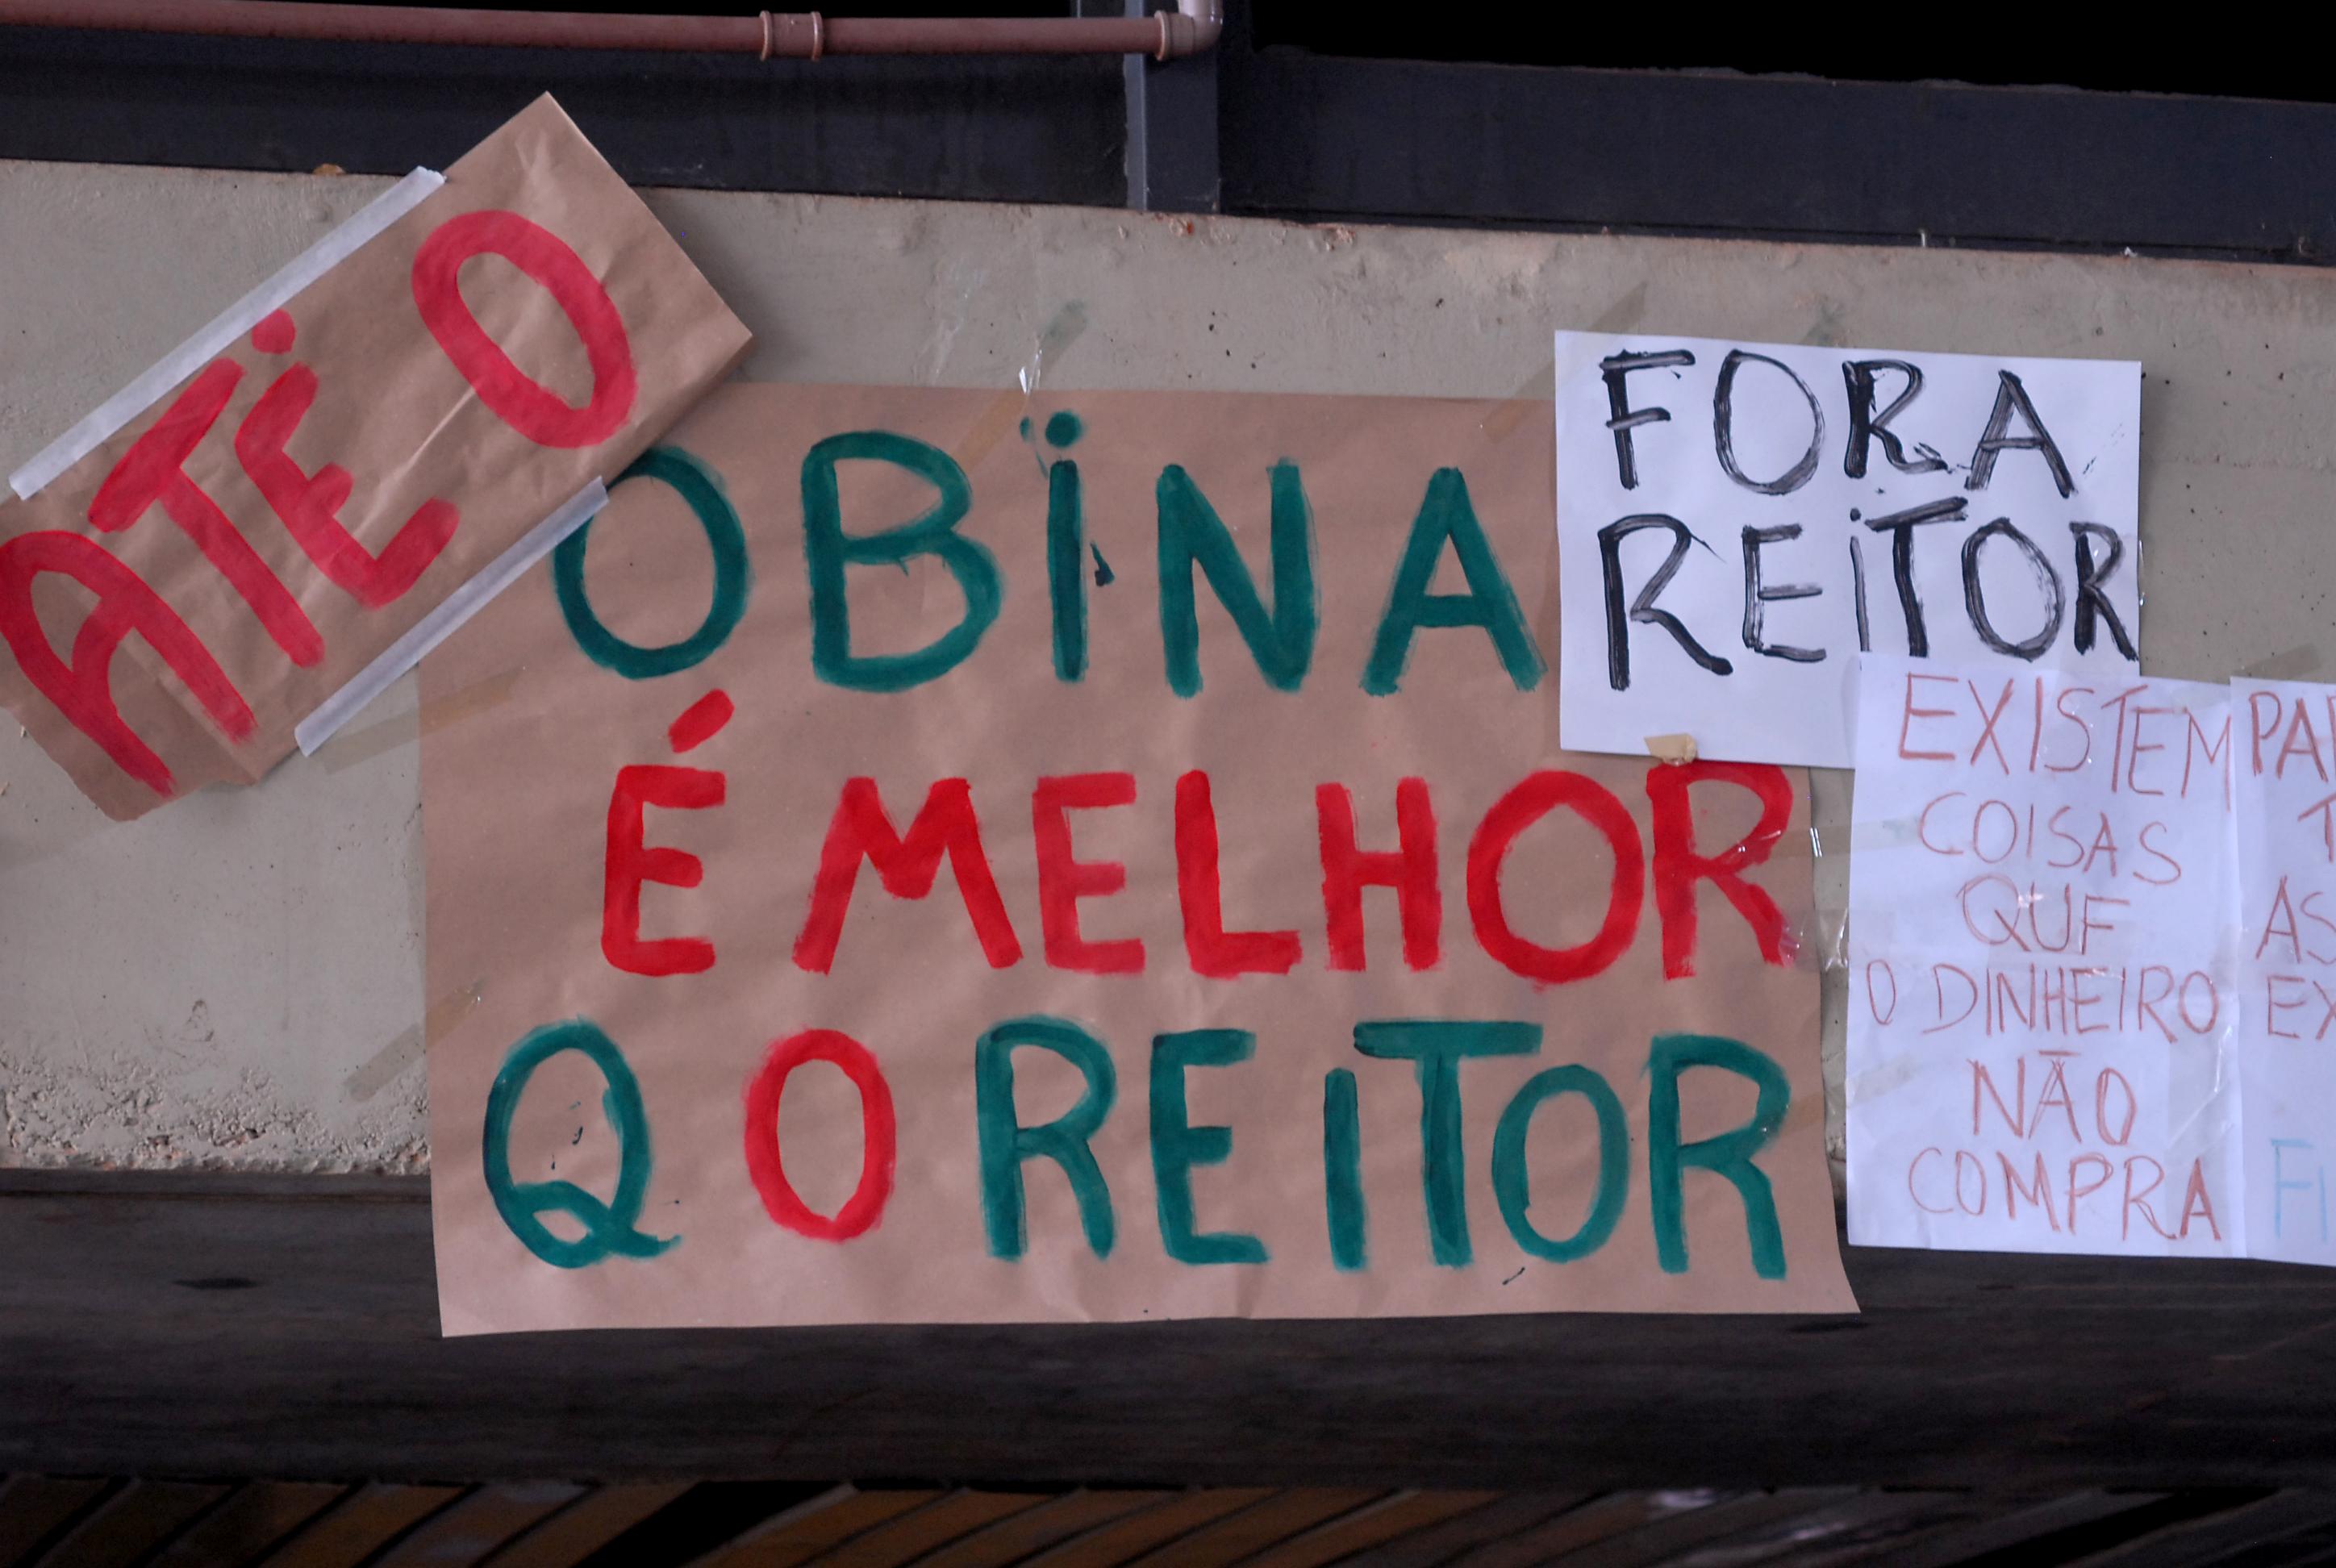 ATÉ O
OBiNA
É MELHOR
Q O REiTOR
FORA
REiTOR
EXISTEM
COISAS
QUE
O DINHEIRO
NÃO
COMPRA